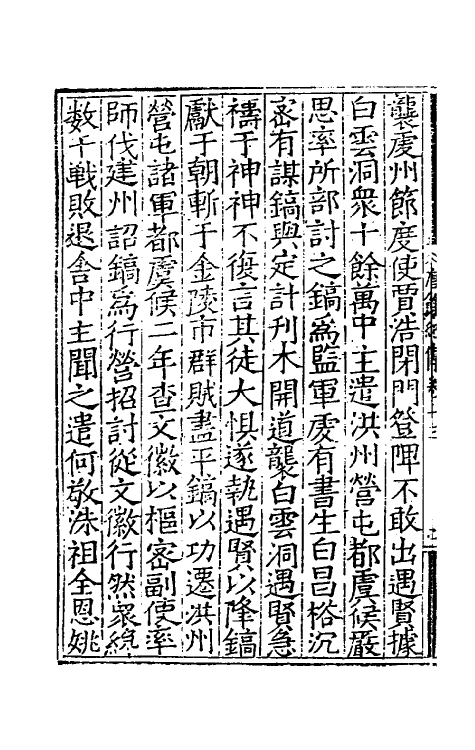 襲虔州節度使賈浩閉門登陴不敢出遇賢據
白雲洞衆十餘萬中主遣洪州營屯都虞候嚴
思率所部討之鎬為監軍虔有書生白昌裕沉
宻有謀鎬與定計刋木開道襲白雲洞遇賢急
禱于神神不復言其徒大惧遂執遇賢以降鎬
獻于朝斬于金陵市群賊盡平鎬以功遷洪州
營屯諸軍都虞候二年查文徽以樞宻副使率
師伐建州詔鎬為行營招討從文徽行然衆纔
数千戦敗退舍中主聞之遣何敬洙祖全恩姚